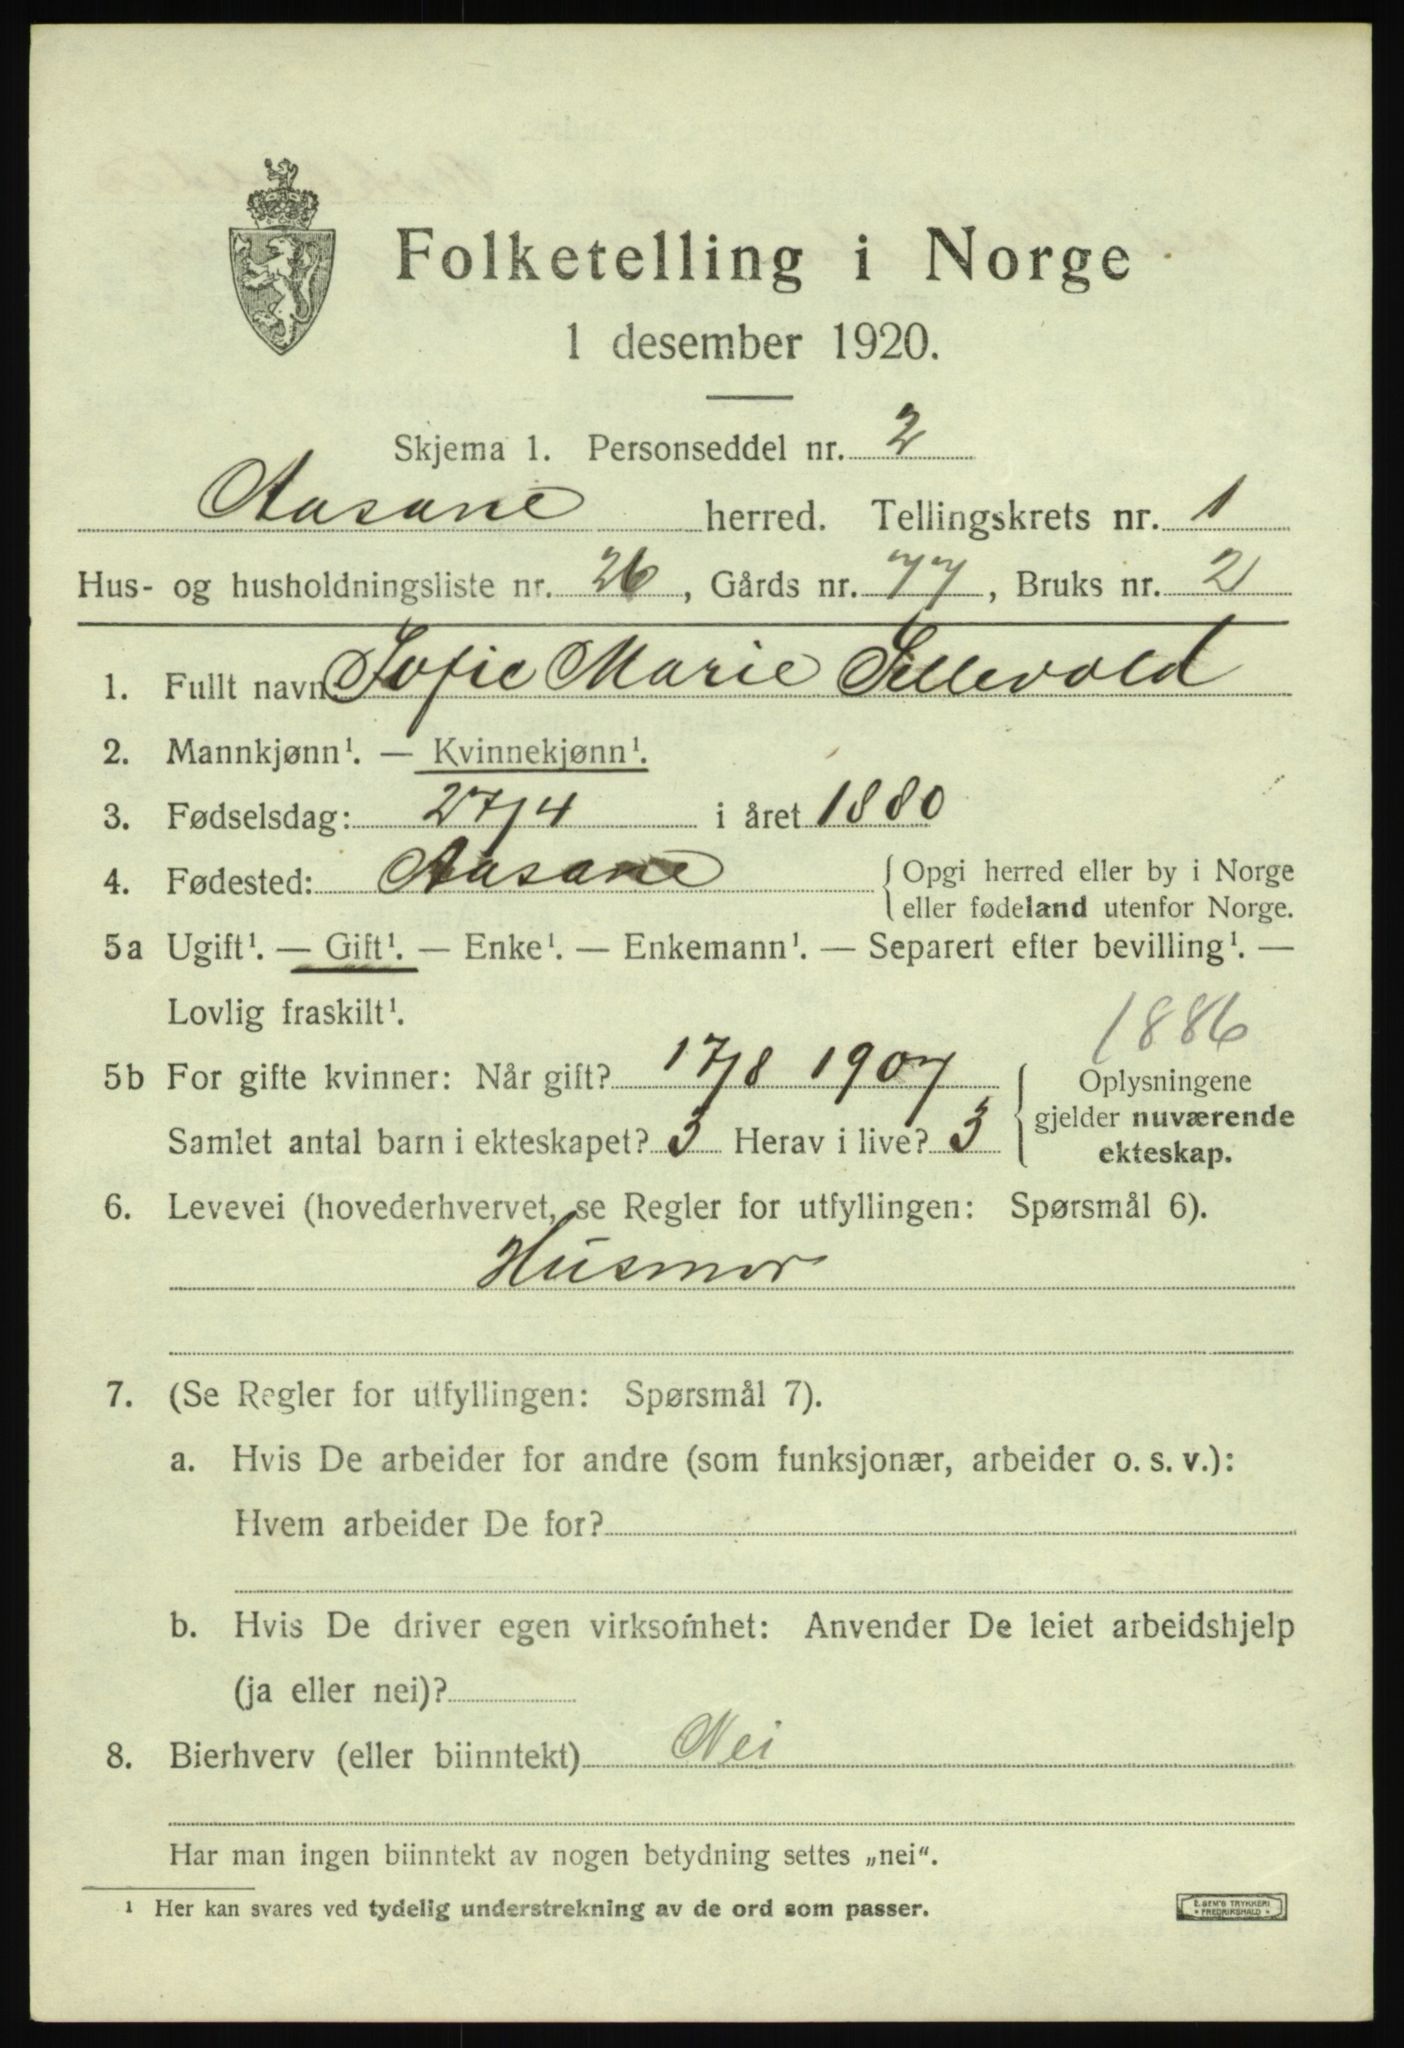 Folketelling i Norge
1 desember 1920.
Skjema 1. Personseddel nr. 2
Aasane herred. Tellingskrets nr. 1
Hus- og husholdningsliste nr. 26, Gårds nr. 77, Bruks nr. 2
1. Fullt navn: Sofie Marie Sellevold
2. Mannkjønn¹. — Kvinnekjønn¹.
3. Fødselsdag: 27/4 i året 1880
4. Fødested: Aasane { Opgi herred eller by i Norge
eller fødeland utenfor Norge.
5a Ugift¹. — Gift¹. — Enke¹. — Enkemann¹. — Separert efter bevilling¹. —
Lovlig fraskilt¹.
1886
5b For gifte kvinner: Når gift? 17/8 1907 { Oplysningene
gjelder nuværende
Samlet antal barn i ekteskapet? 3 Herav i live? 3
ekteskap.
6. Levevei (hovederhvervet, se Regler for utfyllingen: Spørsmål 6).
Husmor
7. (Se Regler for utfyllingen: Spørsmål 7).
a. Hvis De arbeider for andre (som funksjonær, arbeider o. s. v.):
Hvem arbeider De for?
b. Hvis De driver egen virksomhet: Anvender De leiet arbeidshjelp
(ja eller nei)?
8. Bierhverv (eller biinntekt) Nei
Har man ingen biinntekt av nogen betydning settes „nei".
¹ Her kan svares ved tydelig understrekning av de ord som passer.
E. SEM'S TRYKKERI
FREDRIKSHALD